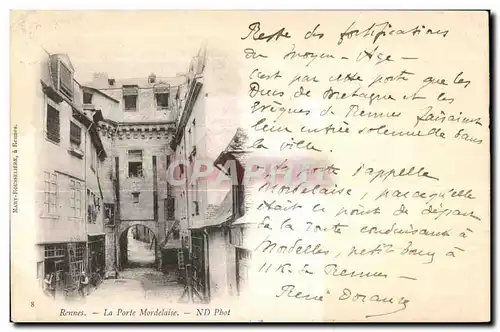 Reste des fortifications
du Moyen-Age -
C'est par cette porte que les
Ducs de Bretagne et les
Evêques de Rennes faisaient
leur entrée solennelle dans
la ville.
La porte s'appelle
Mordelaise, parcequ'elle
était le point de départ
de la route conduisant à
Mordelles, petit bourg à
11 K. de Rennes -
CPArama
MARY-ROUSSELIÈRE, à Rennes.
8
Rennes. - La Porte Mordelaise. - ND Phot